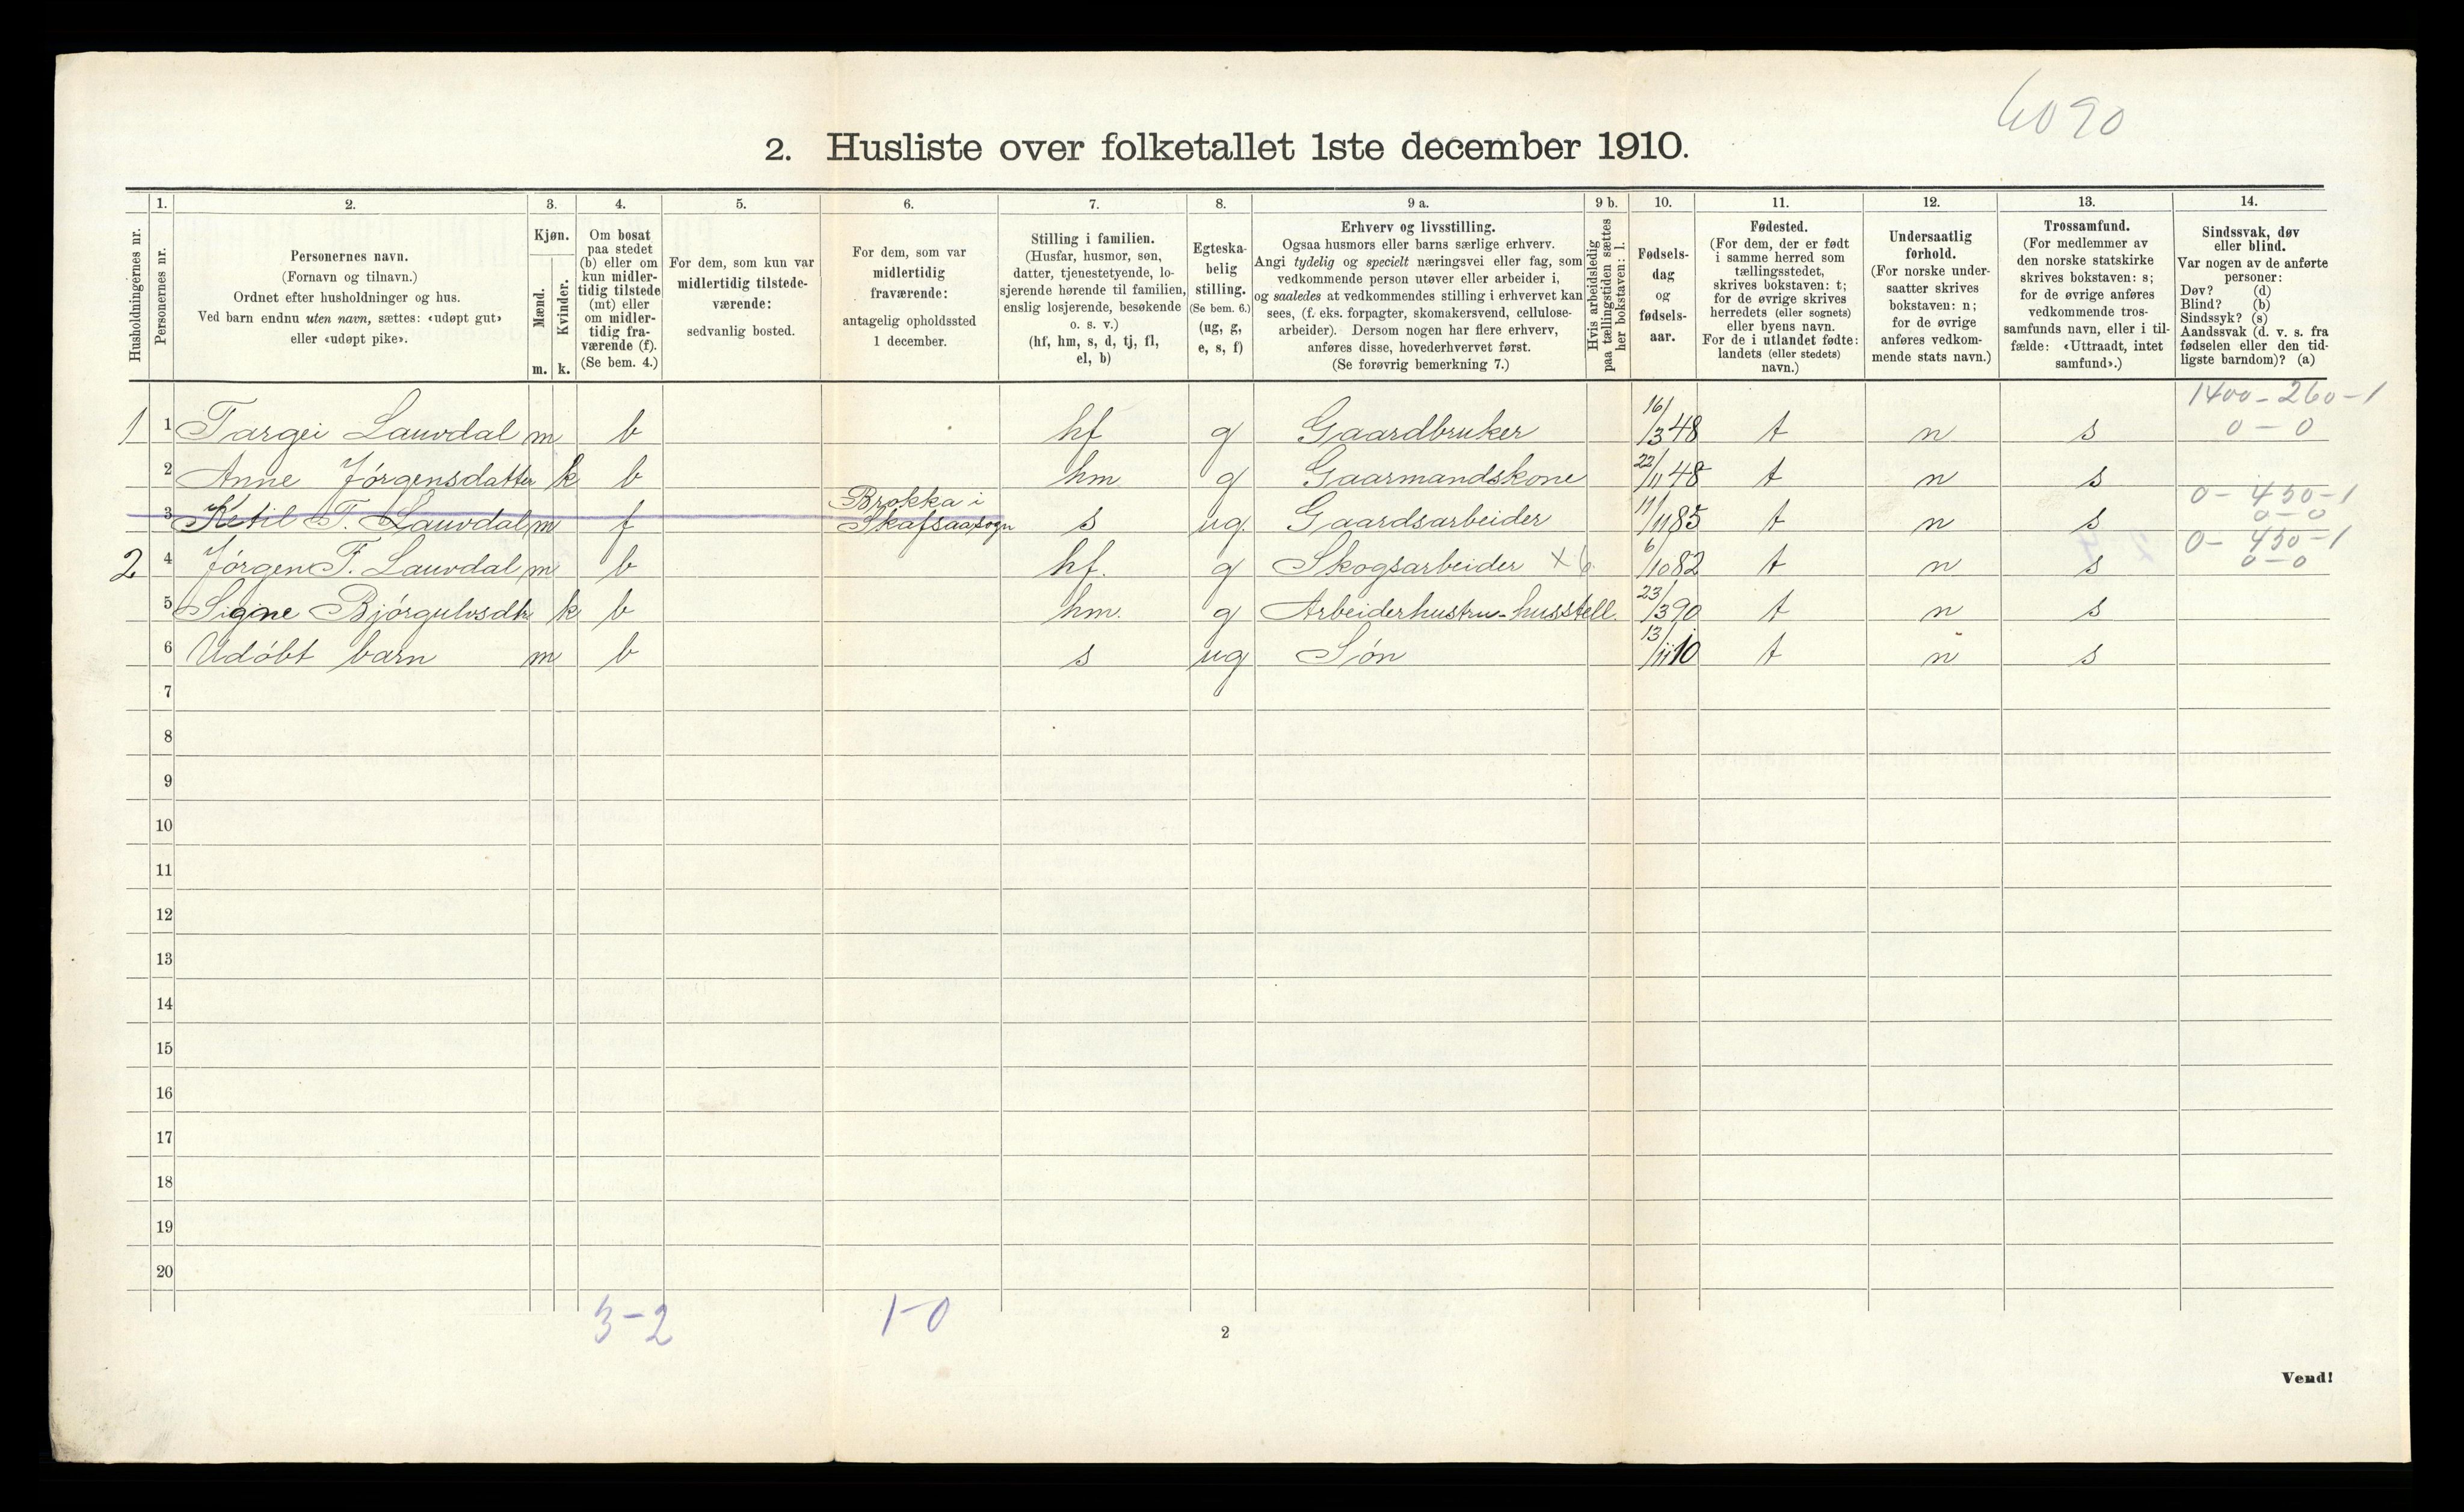 6090
2. Husliste over folketallet 1ste december 1910.
Husholdningernes nr.
1.
Personernes nr.
2.
Personernes navn.
(Fornavn og tilnavn.)
Ordnet efter husholdninger og hus.
Ved barn endnu uten navn, sættes: «udøpt gut»
eller «udøpt pike».
3.
Kjøn.
Mænd.
Kvinder.
m. k.
4.
Om bosat
paa stedet
(b) eller om
kun midler-
tidig tilstede
(mt) eller
om midler-
tidig fra-
værende (f).
(Se bem. 4.)
5.
For dem, som kun var
midlertidig tilstede-
værende:
sedvanlig bosted.
6.
For dem, som var
midlertidig
fraværende:
antagelig opholdssted
1 december.
7.
Stilling i familien.
(Husfar, husmor, søn,
datter, tjenestetyende, lo-
sjerende hørende til familien,
enslig losjerende, besøkende
o. s. v.)
(hf, hm, s, d, tj, fl,
el, b)
8.
Egteska-
belig
stilling.
(Se bem. 6.)
(ug, g,
e, s, f)
9 a.
Erhverv og livsstilling.
Ogsaa husmors eller barns særlige erhverv.
Angi tydelig og specielt næringsvei eller fag, som
vedkommende person utøver eller arbeider i,
og saaledes at vedkommendes stilling i erhvervet kan
sees, (f. eks. forpagter, skomakersvend, cellulose-
arbeider). Dersom nogen har flere erhverv,
anføres disse, hovederhvervet først.
(Se forøvrig bemerkning 7.)
9 b.
Hvis arbeidsledig
paa tællingstiden sættes
her bokstaven: l.
10.
Fødsels-
dag
og
fødsels-
aar.
11.
Fødested.
(For dem, der er født
i samme herred som
tællingsstedet,
skrives bokstaven: t;
for de øvrige skrives
herredets (eller sognets)
eller byens navn.
For de i utlandet fødte:
landets (eller stedets)
navn.)
12.
Undersaatlig
forhold.
(For norske under-
saatter skrives
bokstaven: n;
for de øvrige
anføres vedkom-
mende stats navn.)
13.
Trossamfund.
(For medlemmer av
den norske statskirke
skrives bokstaven: s;
for de øvrige anføres
vedkommende tros-
samfunds navn, eller i til-
fælde: «Uttraadt, intet
samfund».)
14.
Sindssvak, døv
eller blind.
Var nogen av de anførte
personer:
Døv? (d)
Blind? (b)
Sindssyk? (s)
Aandssvak (d. v. s. fra
fødselen eller den tid-
ligste barndom)? (a)
1400-260-1
1 1 Targei Lauvdal m b hf g Gaardbruker 16/3 48 t n s 0-0
2 Anne Jørgensdatter k b hm g Gaarmandskone 22/11 48 t n s
Brokka i 0-450-1
3 Ketil T. Lauvdal m f Skafsaasogn s ug. Gaardsarbeider 11/11 85 t n s 0-0
0-450-1
2 4 Jørgen T. Lauvdal m b hf. g Skogsarbeider 6/10 82 t n s 0-0
5 Signe Bjørgulvsdtr k b hm. g Arbeiderhustru-husstell. 23/3 90 t n s
6 Udøbt barn m b s ug Søn 13/11 10 t n s
7
8
9
10
11
12
13
14
15
16
17
18
19
20
3-2 1-0
2
Vend!